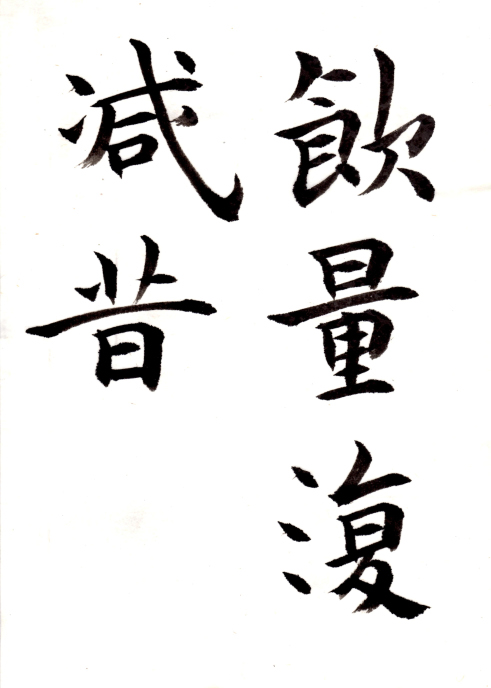 飲量復
減昔